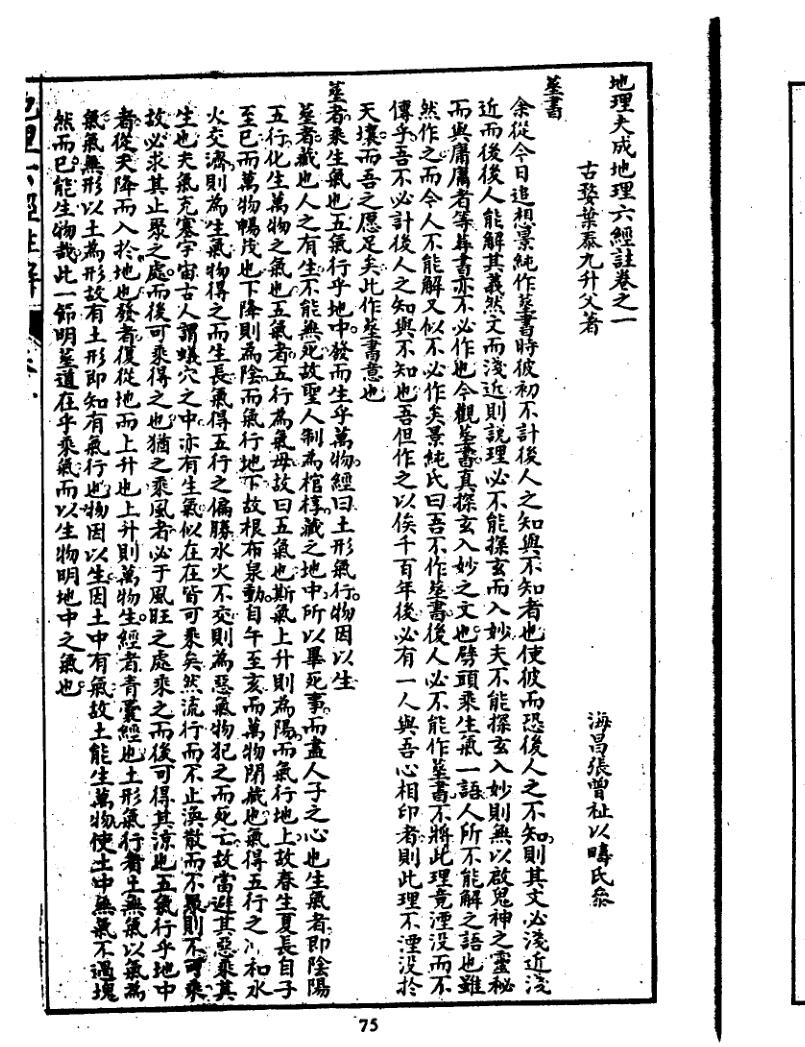 地理大成地理六經註卷之一
古婺葉泰九升父著
海昌張曾祉以疇氏參
葬書
余從今日追想景純作葬書時彼初不計後人之知與不知者也使彼而恐後人之不知則其文必淺近淺
近而後後人能解其義然文而淺近則說理必不能探玄而入妙夫不能探玄入妙則無以啟鬼神之靈秘
而與庸庸者等葬書亦不必作也今觀葬書真探玄入妙之文也劈頭乘生氣一語人所不能解之語也雖
然作之而令人不能解又似不必作矣景純氏曰吾不作葬書後人必不能作葬書不將此理竟湮没而不
傳乎吾不必計後人之知與不知也吾但作之以俟千百年後必有一人與吾心相印者則此理不湮没於
天壤而吾之愿足矣此作葬書意也
葬者乘生氣也五氣行乎地中發而生乎萬物經曰土形氣行物因以生
葬者藏也人之有生不能無死故聖人制為棺椁藏之地中所以畢死事而盡人子之心也生氣者即陰陽
五行化生萬物之氣也五氣者五行為氣母故曰五氣也斯氣上升則為陽而氣行地上故春生夏長自子
至巳而萬物暢茂也下降則為陰而氣行地下故根布泉動自午至亥而萬物閉藏也氣得五行之和水
火交濟則為生氣物得之而生長氣得五行之偏勝水火不交則為惡氣物犯之而死亡故當避其惡乘其
生也夫氣充塞宇宙古人謂蟻穴之中亦有生氣似在在皆可乘矣然流行而不止渙散而不聚則不可乘
故必求其止聚之處而後可乘得之也猶之乘風者必于風旺之處乘之而後可得其涼也五氣行乎地中
者從天降而入於地也發者復從地而上升也上升則萬物生經者青囊經也土形氣行者土無氣以氣為
氣氣無形以土為形故有土形即知有氣行也物因以生因土中有氣故土能生萬物使土中無氣不過塊
然而已能生物哉此一節明葬道在乎乘氣而以生物明地中之氣也
地理六經註解
卷一
75